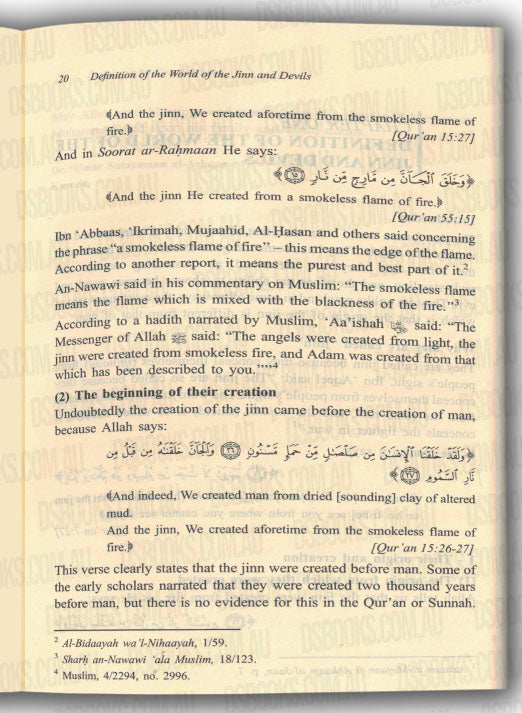 20 Definition of the World of the Jinn and Devils
﴾And the jinn, We created aforetime from the smokeless flame of
fire.﴿ [Qur’an 15:27]
And in Soorat ar-Raḥmaan He says:
﴿وَخَلَقَ ٱلْجَآنَّ مِن مَّارِجٍ مِّن نَّارٍ ۝١٥﴾
﴾And the jinn He created from a smokeless flame of fire.﴿
[Qur’an 55:15]
Ibn ‘Abbaas, ‘Ikrimah, Mujaahid, Al-Ḥasan and others said concerning
the phrase “a smokeless flame of fire” – this means the edge of the flame.
According to another report, it means the purest and best part of it.²
An-Nawawi said in his commentary on Muslim: “The smokeless flame
means the flame which is mixed with the blackness of the fire.”³
According to a hadith narrated by Muslim, ‘Aa’ishah said: “The
Messenger of Allah ﷺ said: “The angels were created from light, the
jinn were created from smokeless fire, and Adam was created from that
which has been described to you.””⁴
(2) The beginning of their creation
Undoubtedly the creation of the jinn came before the creation of man,
because Allah says:
﴿وَلَقَدْ خَلَقْنَا ٱلْإِنسَـٰنَ مِن صَلْصَـٰلٍ مِّنْ حَمَإٍ مَّسْنُونٍ ۝٢٦ وَٱلْجَآنَّ خَلَقْنَـٰهُ مِن قَبْلُ مِن
نَّارِ ٱلسَّمُومِ ۝٢٧﴾
﴾And indeed, We created man from dried [sounding] clay of altered
mud.
And the jinn, We created aforetime from the smokeless flame of
fire.﴿ [Qur’an 15:26-27]
This verse clearly states that the jinn were created before man. Some of
the early scholars narrated that they were created two thousand years
before man, but there is no evidence for this in the Qur’an or Sunnah.
² Al-Bidaayah wa’l-Nihaayah, 1/59.
³ Sharḥ an-Nawawi ‘ala Muslim, 18/123.
⁴ Muslim, 4/2294, no. 2996.
DSBOOKS.COM.AU